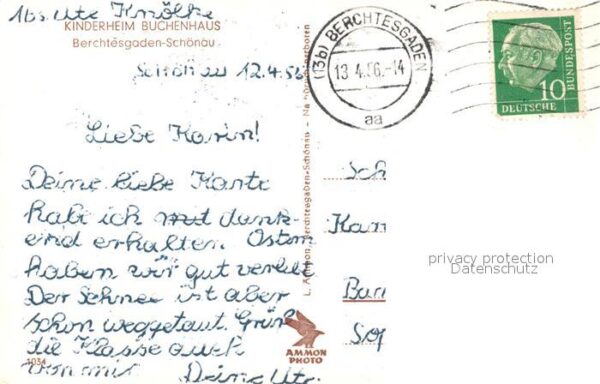 Abs. Ute Knölke
KINDERHEIM BUCHENHAUS
Berchtesgaden-Schönau
Schönau 12.4.56
Liebe Karin!
Deine liebe Karte
habe ich mit dank-
end erhalten. Ostern
haben wir gut verlebt
Der Schnee ist aber
schon weggetaut. Grüße
die Klasse auch
von mir Deine Ute.
1034
L. Ammon, Berchtesgaden-Schönau - Nachdruck verboten
AMMON
PHOTO
(13b) BERCHTESGADEN
13.4.56.-14
aa
10
DEUTSCHE
BUNDESPOST
Sch
Kar
privacy protection
Datenschutz